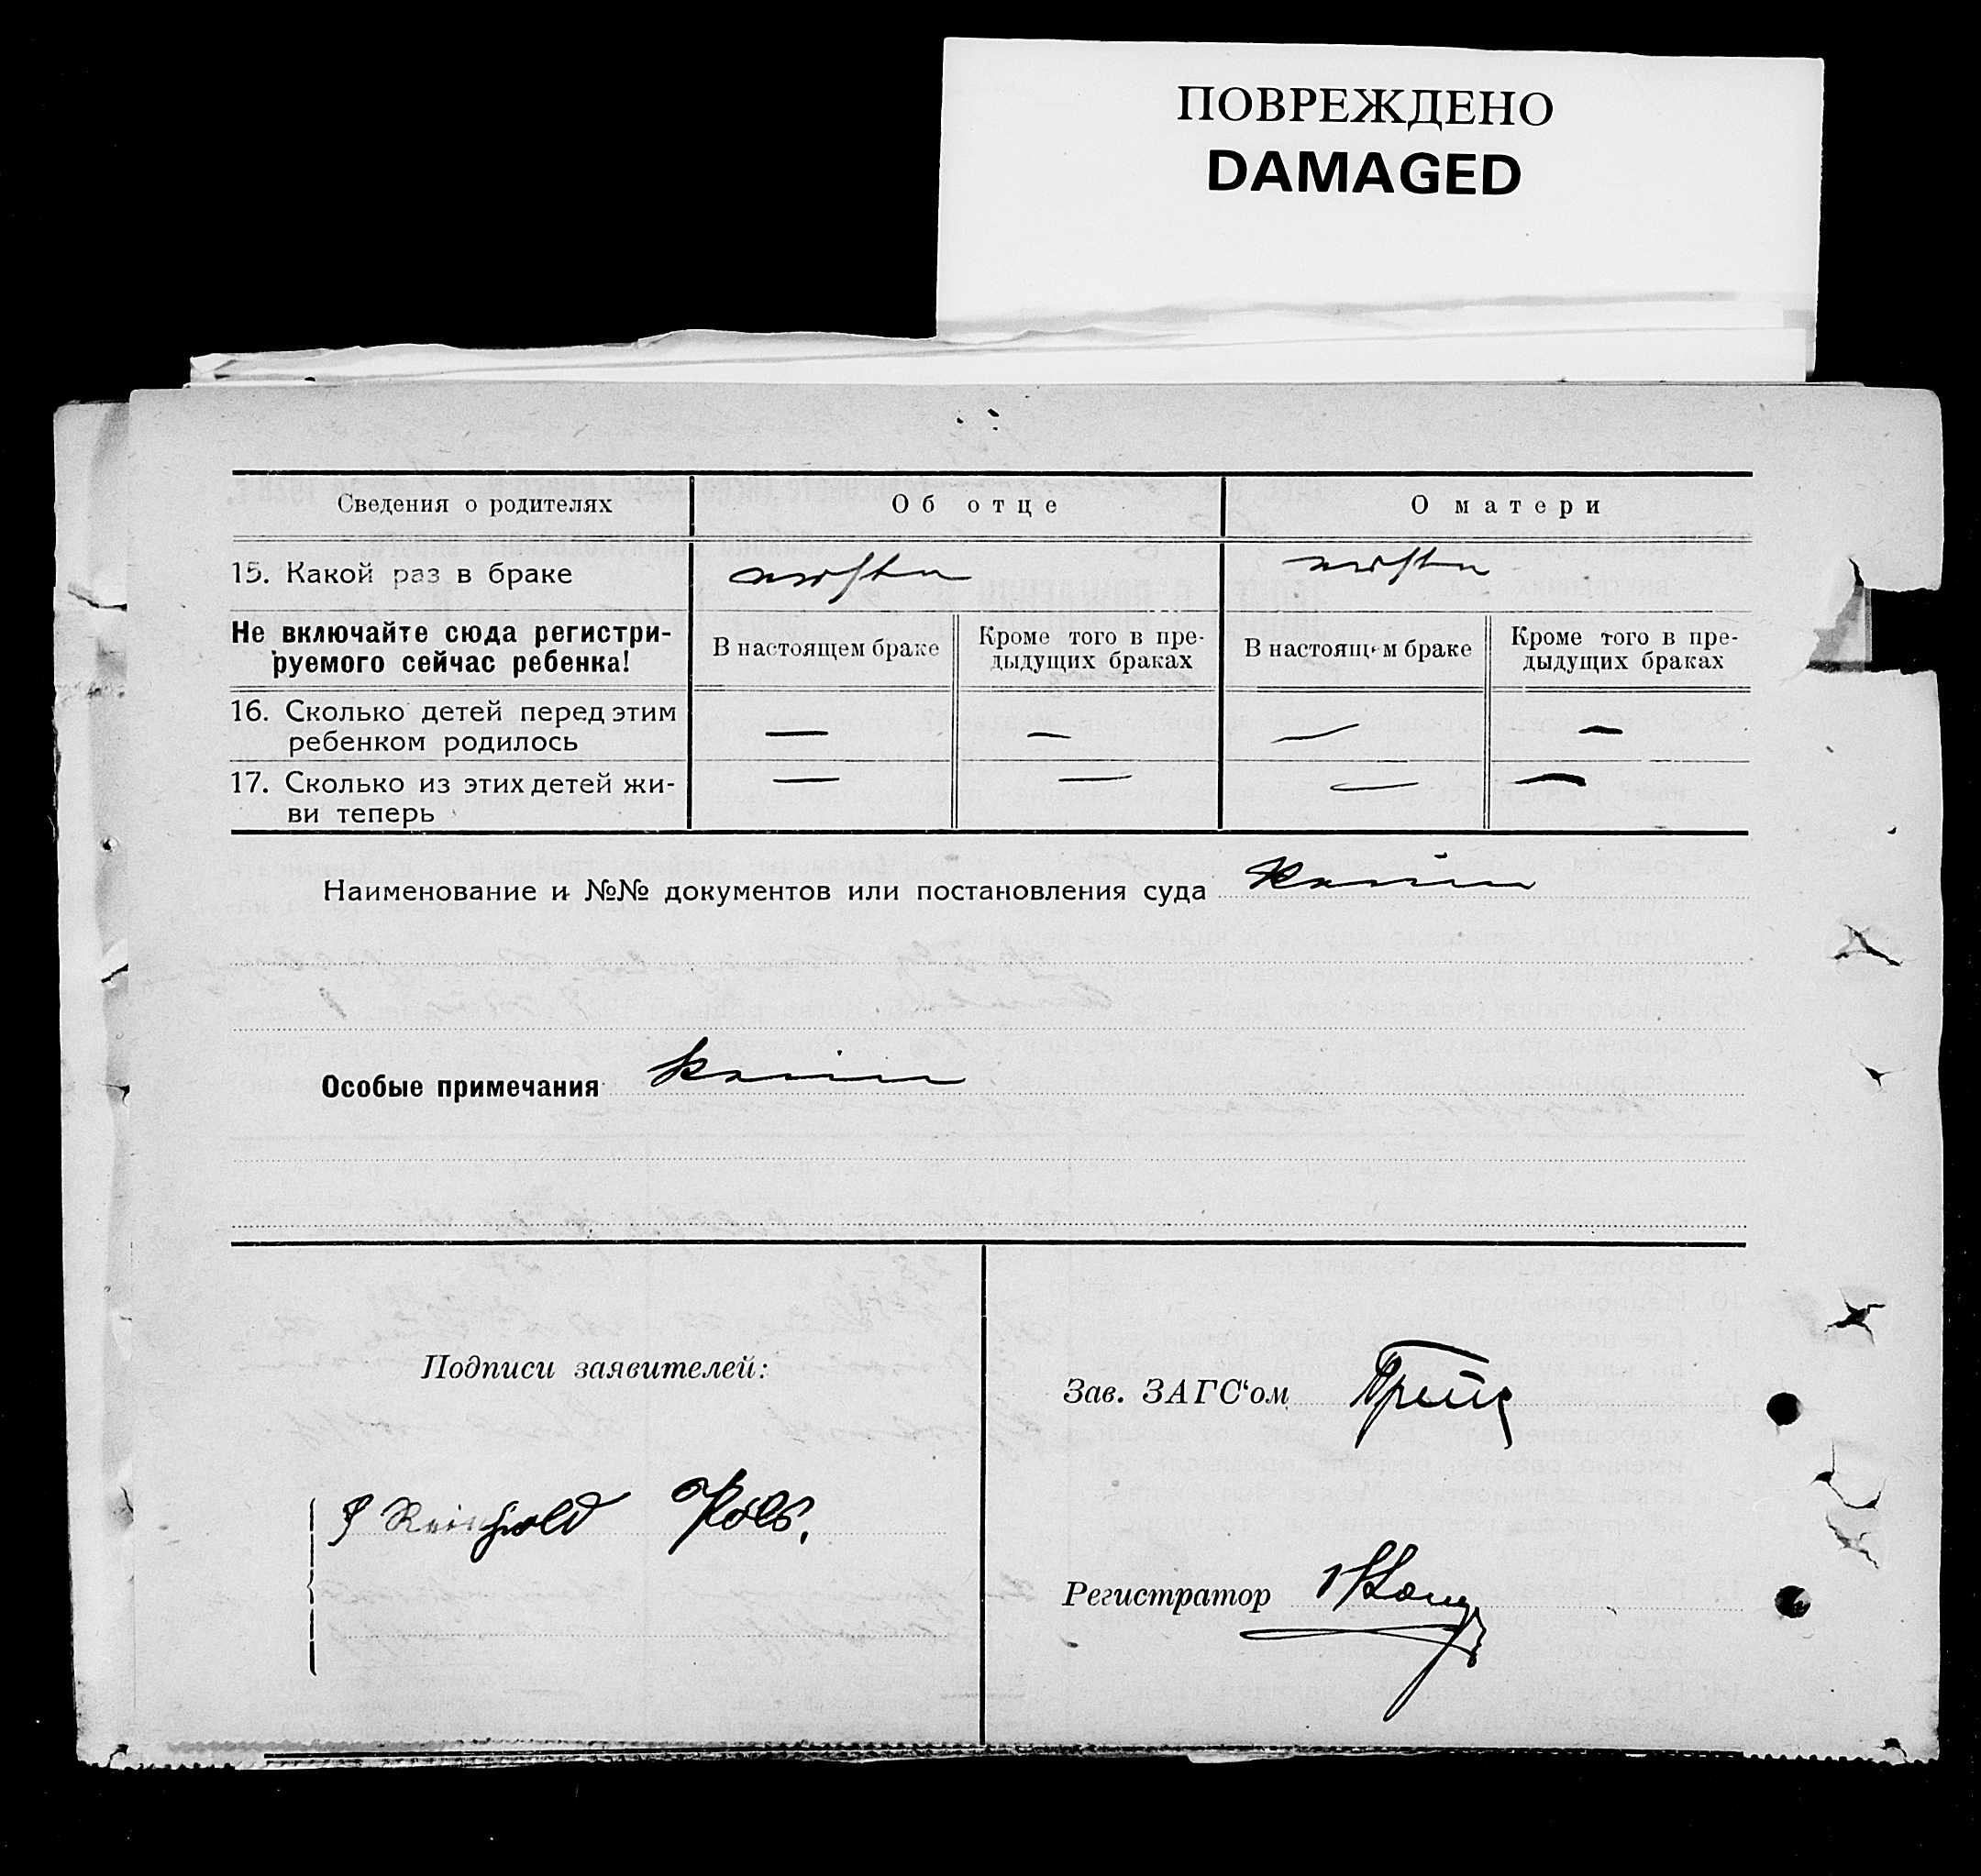 ПОВРЕЖДЕНО
DAMAGED
Сведения о родителях
Об отце
О матери
15. Какой раз в браке
Не включайте сюда регистри-
руемого сейчас ребенка!
В настоящем браке
Кроме того в пре-
дыдущих браках
В настоящем браке
Кроме того в пре-
дыдущих браках
16. Сколько детей перед этим
ребенком родилось
— — — —
17. Сколько из этих детей жи-
ви теперь
— — — —
Наименование и №№ документов или постановления суда
Особые примечания
Подписи заявителей:
Reinhold
Зав. ЗАГС‘ом
Регистратор